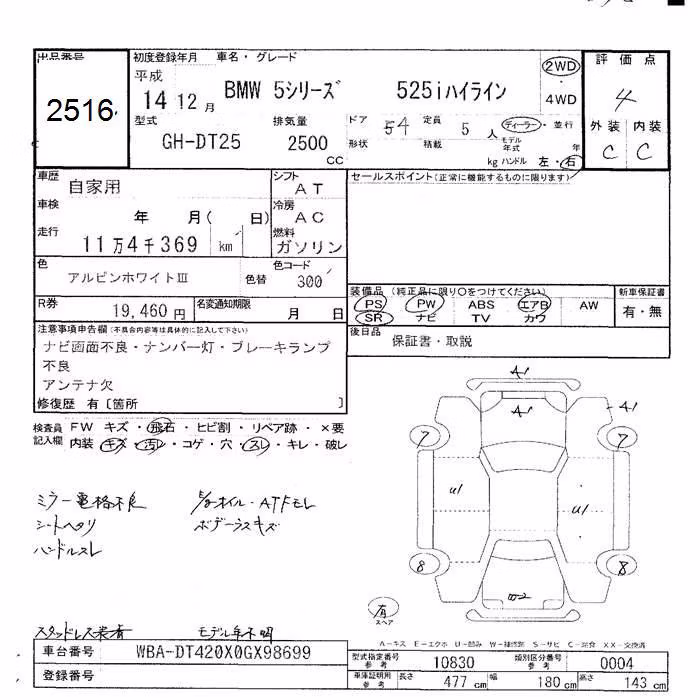 出品番号
2516
初度登録年月 車名・グレード
平成
14 12 月 BMW 5シリーズ 525iハイライン
2WD
4WD
評価点
4
外装 内装
C C
型式 排気量
GH-DT25 2500 CC
ドア 54 定員 5 人 ディーラー・並行
形状 積載 kg モデル年式 年
ハンドル 左・右
車歴 自家用
シフト AT
車検 年 月( 日)
冷房 AC
走行 11万4千369 km
燃料 ガソリン
色 アルピンホワイトIII
色替 色コード 300
R券 19,460円 名変通知期限 月 日
セールスポイント(正常に機能するものに限ります)
装備品(純正品に限り○をつけてください)
PS PW ABS エアB AW
SR ナビ TV カワ
新車保証書
有・無
後日品 保証書・取説
注意事項申告欄(不具合内容等は具体的に記入して下さい)
ナビ画面不良・ナンバー灯・ブレーキランプ
不良
アンテナ欠
修復歴 有〔箇所 〕
検査員記入欄
FW キズ・飛石・ヒビ割・リペア跡・×要
内装 キズ・汚レ・コゲ・穴・スレ・キレ・破レ
ミラー電格不良
シートヘタリ
ハンドルスレ
オイル・ATFモレ
ボデーラスキズ
スタッドレス装着 モデル年不明
A1
A1
A1
7 7
U1 U1
8 8
有
スペア
A-キズ E-エクボ U-凹み W-補修跡 S-サビ C-腐食 XX-交換済
車台番号 WBA-DT420X0GX98699
登録番号
型式指定番号 参考 10830 類別区分番号 参考 0004
車庫証明用 参考 長さ 477 cm 幅 180 cm 高さ 143 cm